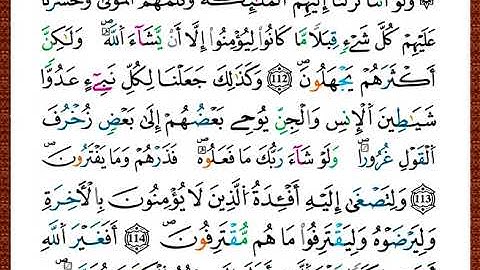 وَلَوَ اَنَّنَا نَزَّلْنَا إِلَيْهِمُ الْمَلَٰٓئِكَةَ وَكَلَّمَهُمُ الْمَوْتَىٰ وَحَشَرْنَا
عَلَيْهِمْ كُلَّ شَےْءٍ قِبَلًا مَّا كَانُواْ لِيُؤْمِنُواْ إِلَّا أَنْ يَّشَآءَ اَللَّهُ وَلَٰكِنَّ
أَكْثَرَهُمْ يَجْهَلُونَ ۝112 وَكَذَٰلِكَ جَعَلْنَا لِكُلِّ نَبِےٓءٍ عَدُوًّا
شَيَٰطِينَ اَلْإِنسِ وَالْجِنِّ يُوحِے بَعْضُهُمْ إِلَىٰ بَعْضٍ زُخْرُفَ
اَلْقَوْلِ غُرُورًا وَلَوْ شَآءَ رَبُّكَ مَا فَعَلُوهُ فَذَرْهُمْ وَمَا يَفْتَرُونَ
۝113 وَلِتَصْغَىٰ إِلَيْهِ أَفْـِٔدَةُ اُلذِينَ لَا يُؤْمِنُونَ بِالْأَخِرَةِ
وَلِيَرْضَوْهُ وَلِيَقْتَرِفُواْ مَا هُم مُّقْتَرِفُونَ ۝114 أَفَغَيْرَ اَللَّهِ